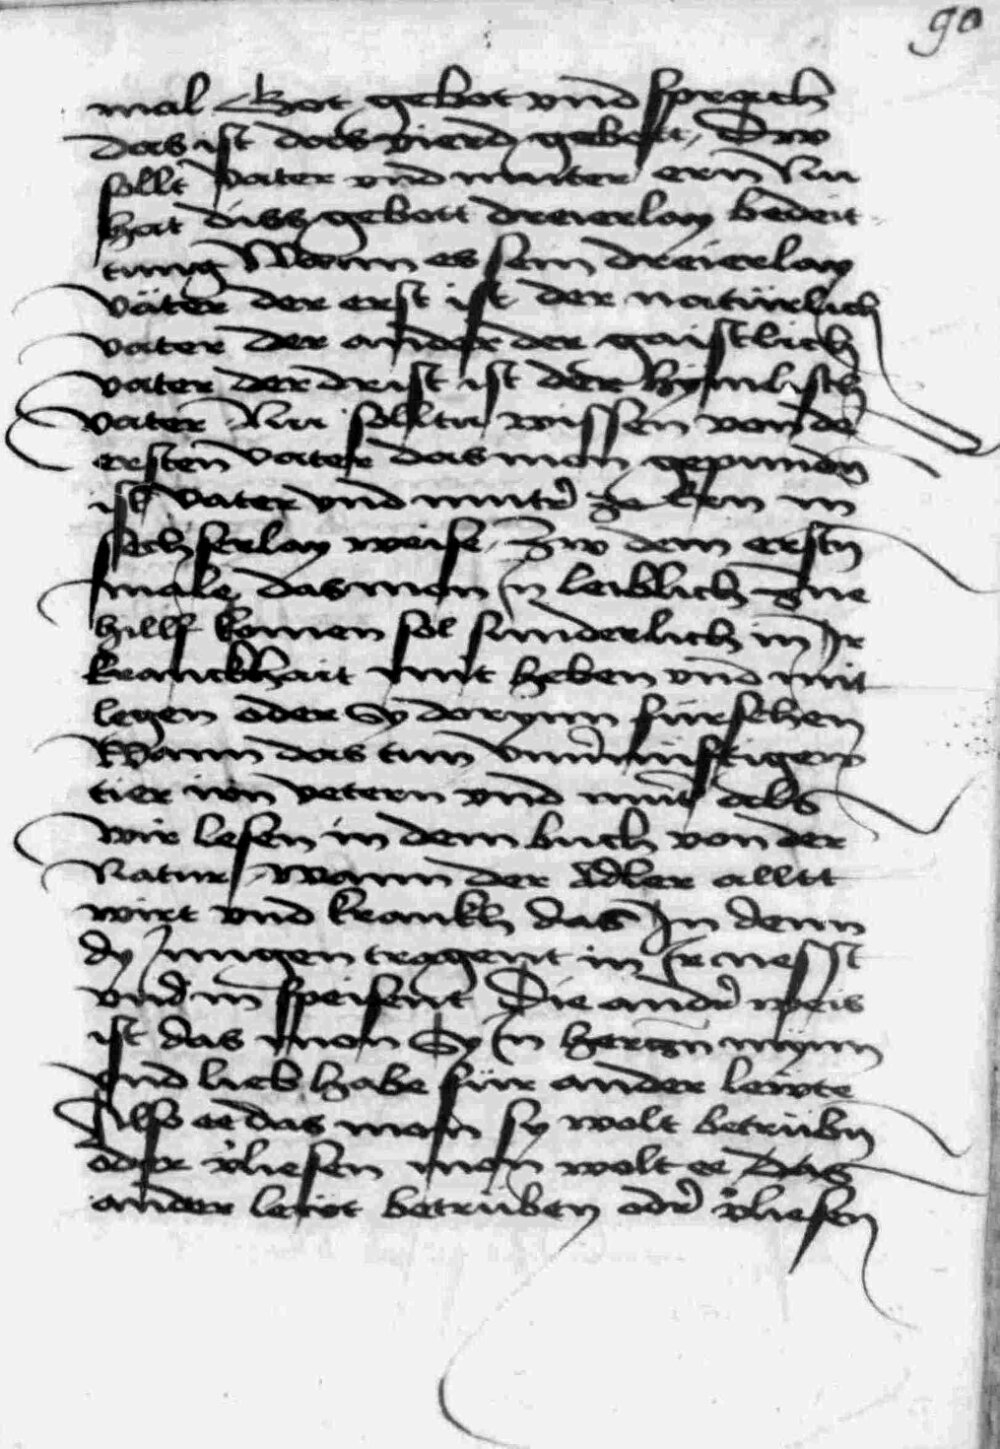 90
mal Got gebot vnd sprach
das ist das vierd gebott, Dw
sollt vater vnd muter ern Nu
hat diss gebott dreierlay bedeit
tung Wann es sein dreierlay
väter der erst ist der natürlich
vater der ander der gaistlich
vater der drist ist der hÿmlisch
vater Nu solltu wissen von de
ersten vater das man gepunden
ist vater vnd mutr̄ ze ern in
sechserlay weise, Zw dem erstn̄
male das man in leiblich zue
hillf komen sol sunderlich in Ir
kranckhait mit heben vnd mit
legen oder sy dorÿnn fürsehen
Wann das tun vnuernüftigen
tier irn̄ vetern vnd mūt als
wir lesen in dem buch von der
Natur, Wann der Adler alltt
wirt vnd krankh das In denn
dy Jungen tragent in Ir nesst
vnd in speisent Die andr̄ weis
ist das man Sy In herczn mÿnn
vnd lieb habe für ander lewte
Also ee das man sy wolt betrübn̄
oder v̄liesen man wolt ee das
ander lewt betrüben odr̄ v̄liesen